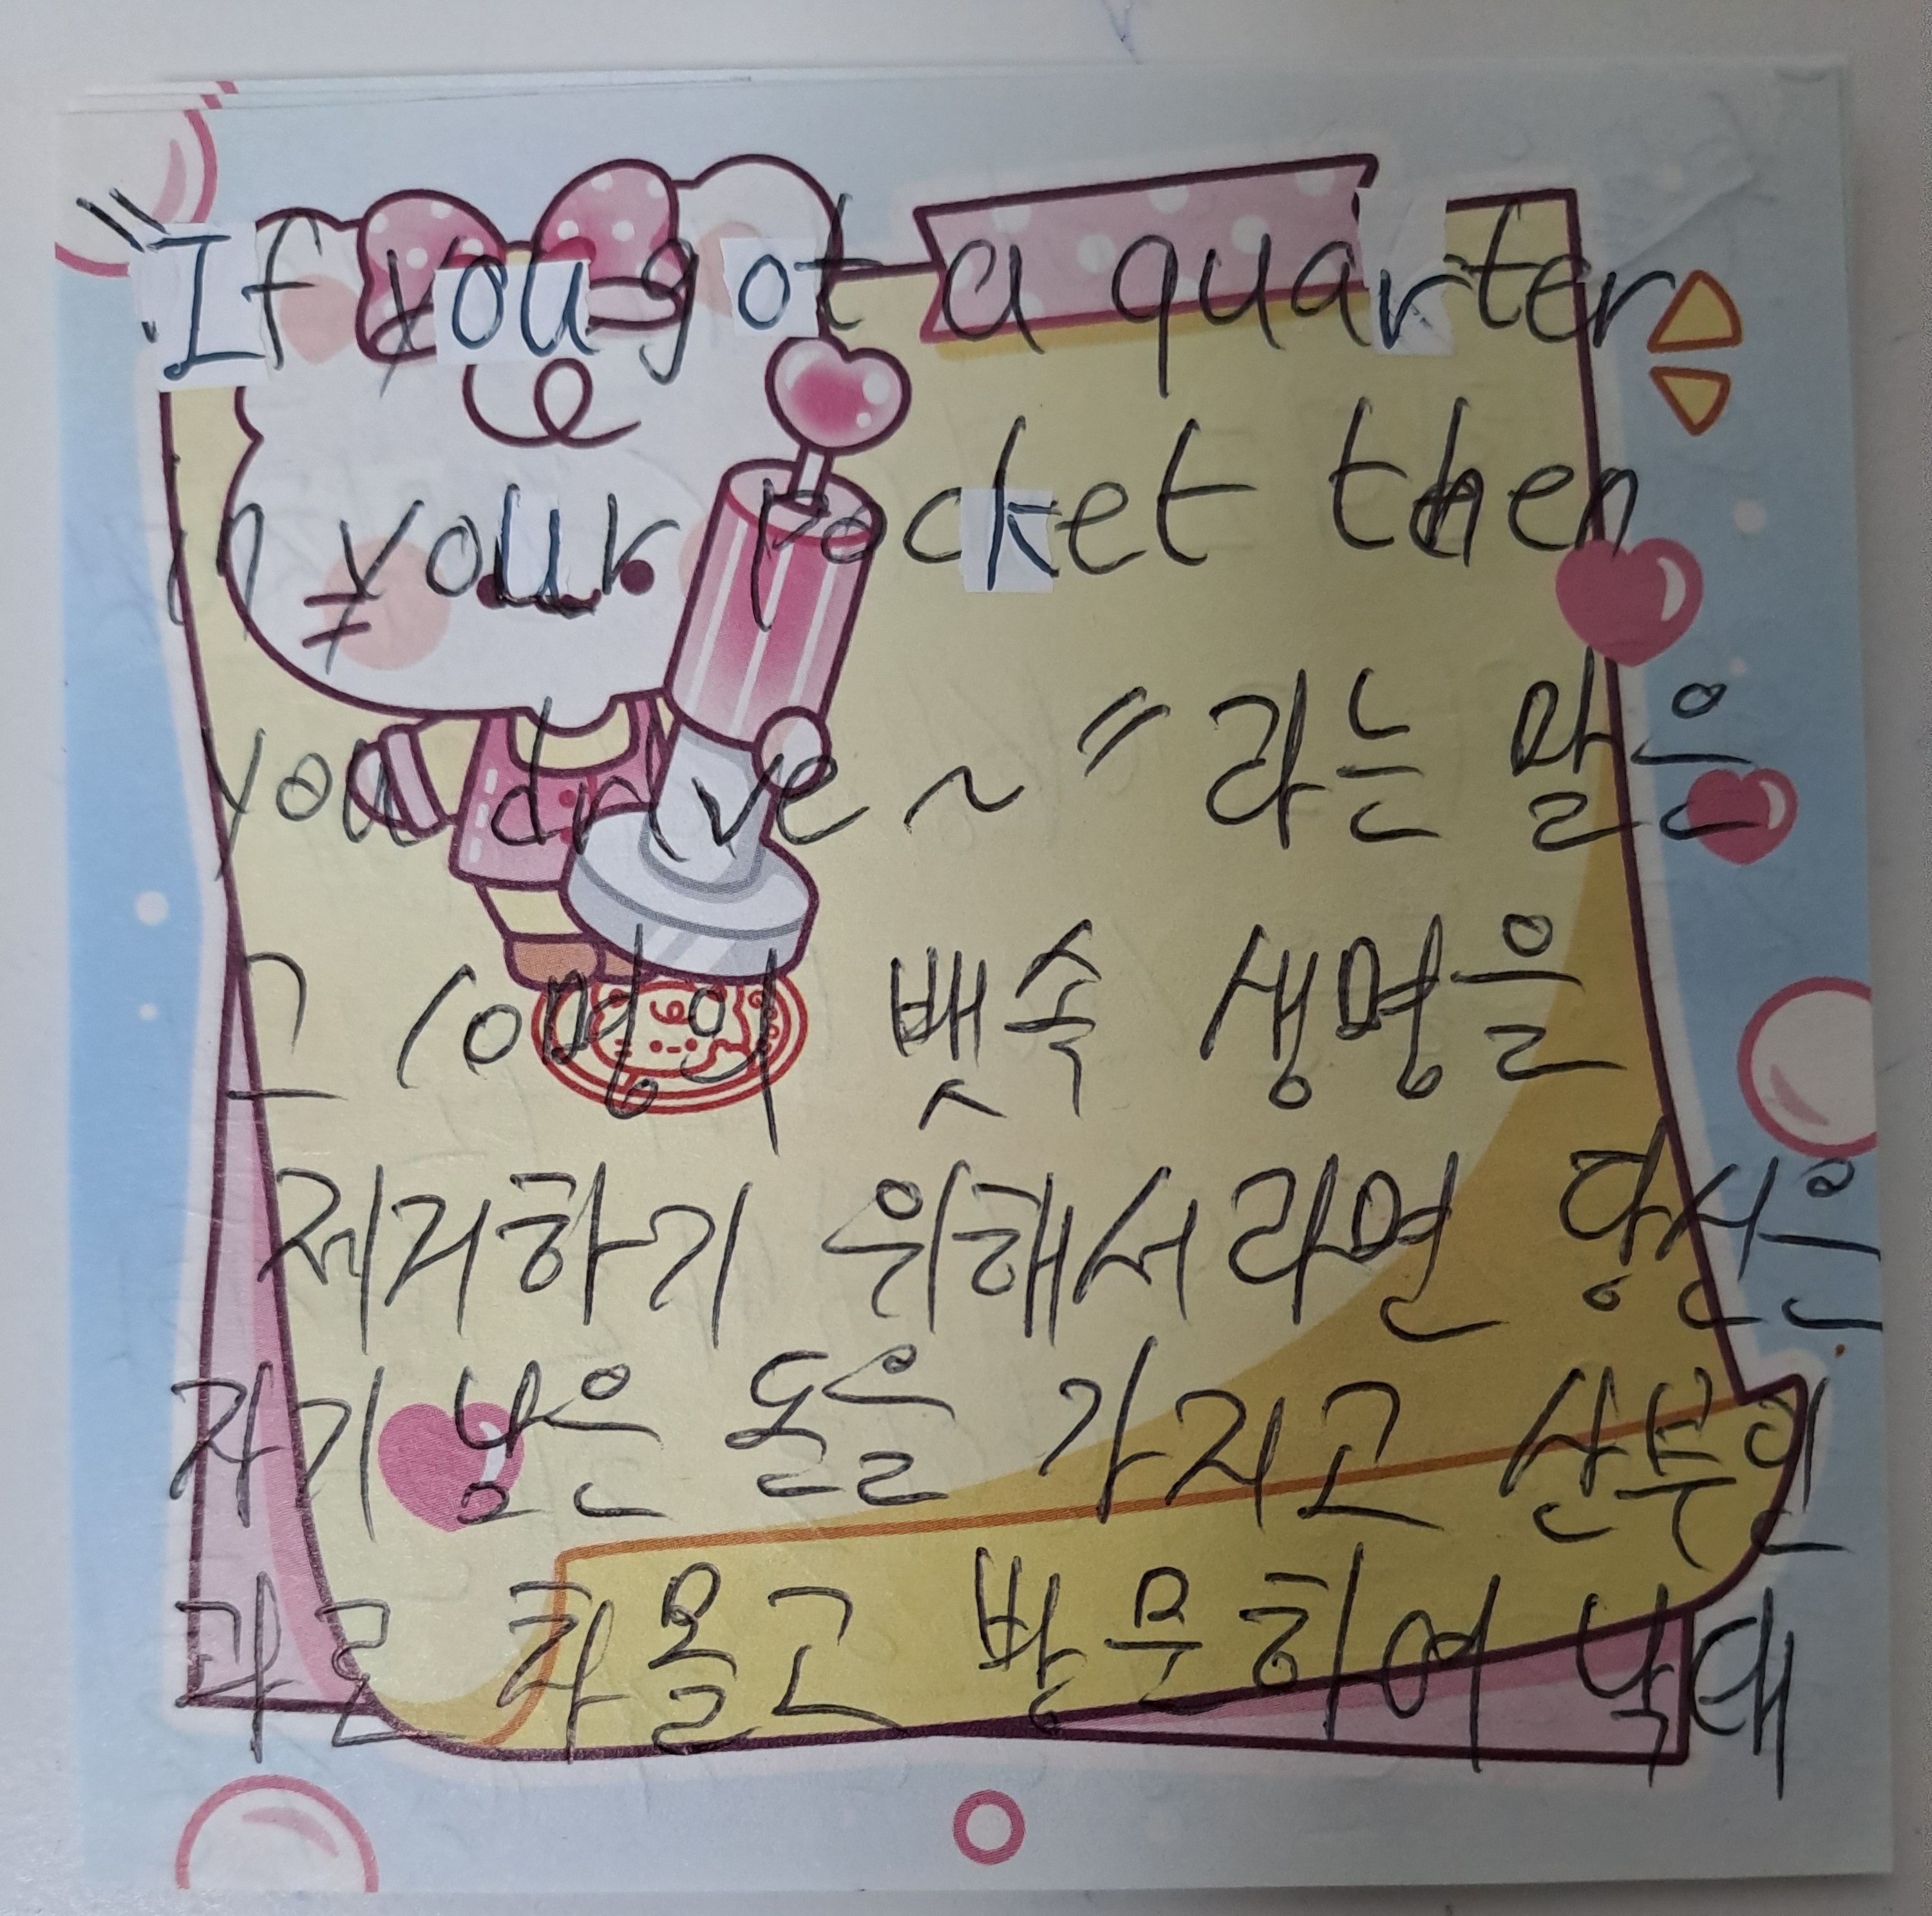 "If you got a quarter
in your pocket then
you drive ~" 라는 말은
그 10명의 뱃속 생명을
제거하기 위해서라면 당신은
자기 남은 돈을 가지고 산부인
과로 차 몰고 방문하여 낙태